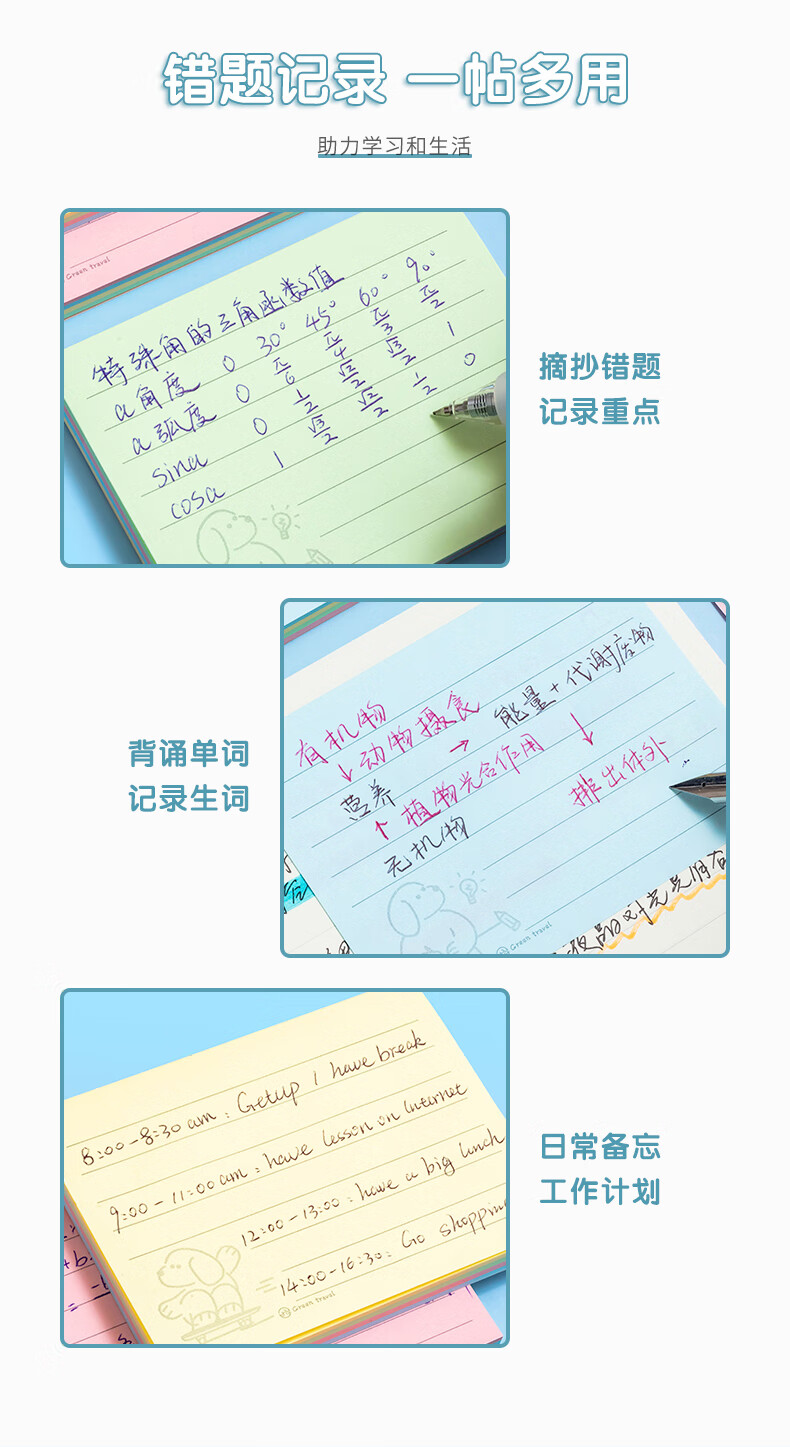 错题记录 一帖多用
助力学习和生活
Green travel
特殊角的三角函数值
α角度 0 30° 45° 60° 90°
α弧度 0 π/6 π/4 π/3 π/2
sinα 0 1/2 √2/2 √3/2 1
cosα 1 √3/2 √2/2 1/2 0
摘抄错题
记录重点
背诵单词
记录生词
有机物
↓动物摄食
营养 → 能量+代谢废物
↑植物光合作用 ↓
无机物 排出体外
Green travel
8:00-8:30 am: Getup I have break
9:00-11:00 am: have lesson on Internet
12:00-13:00: have a big lunch
14:00-16:30: Go shoppin
Green travel
日常备忘
工作计划